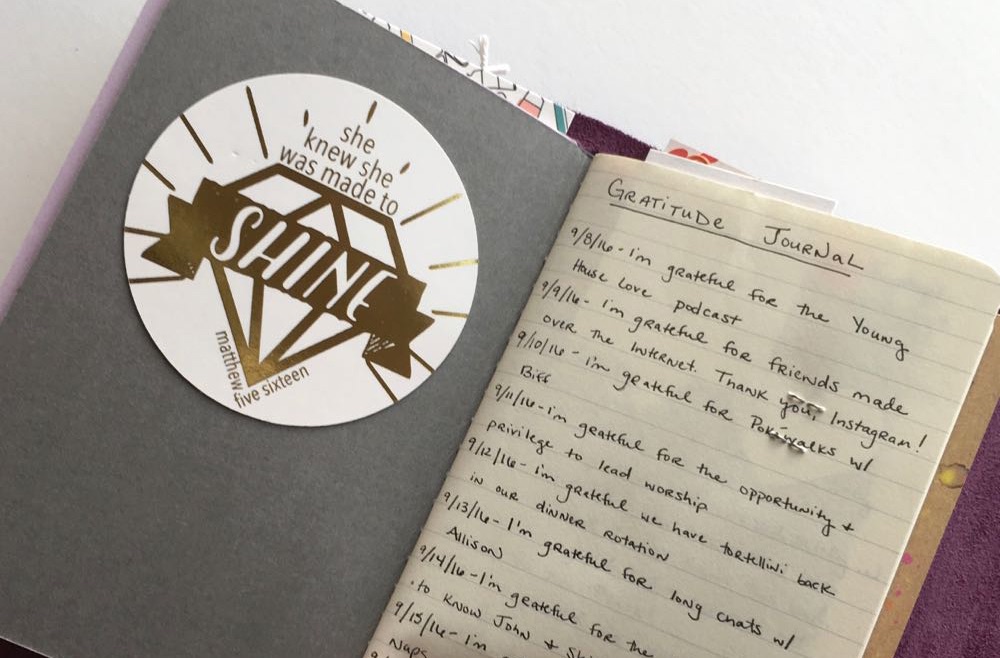 she
knew she
was made to
SHINE
matthew
five sixteen
GRATITUDE JOURNAL
9/8/16 - i'm grateful for the Young
House Love podcast
9/9/16 - i'm grateful for friends made
over the Internet. Thank you, Instagram!
9/10/16 - i'm grateful for Pokéwalks w/
Biff
9/11/16 - i'm grateful for the opportunity +
privilege to lead worship
9/12/16 - i'm grateful we have tortellini back
in our dinner rotation
9/13/16 - I'm grateful for long chats w/
Allison
9/14/16 - I'm grateful for the
to know John &
9/15/16 - i'm
Naps